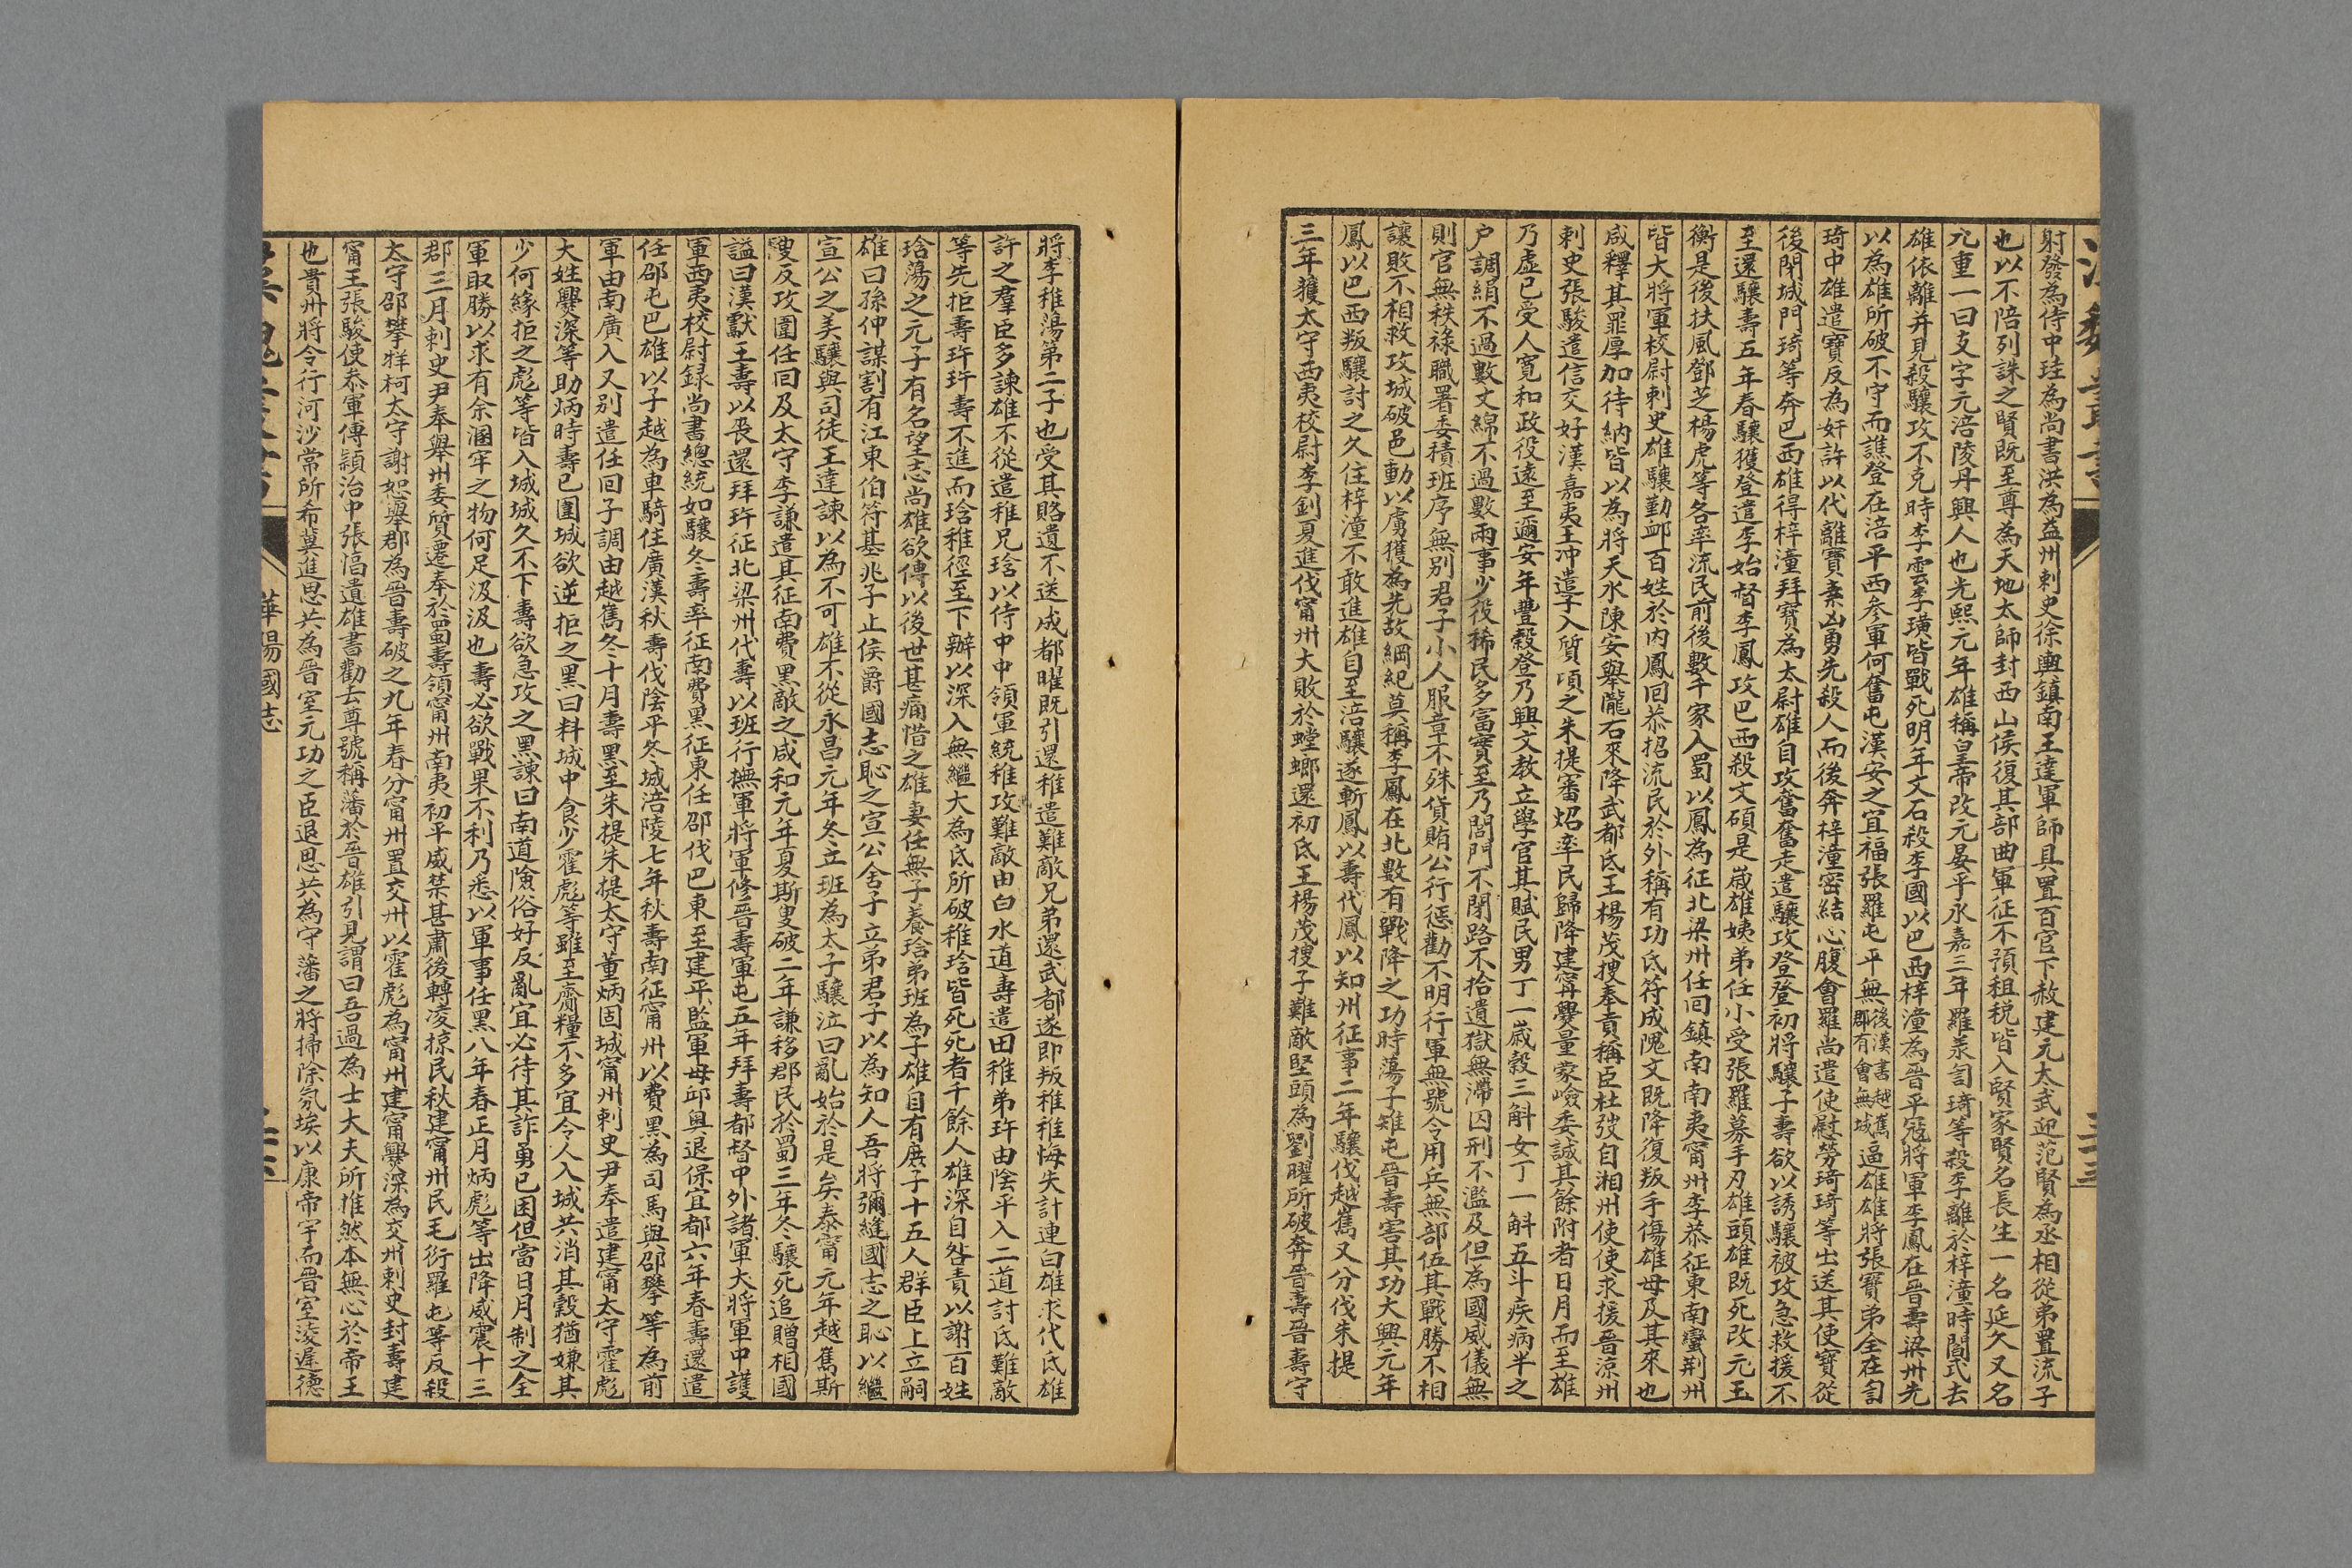 射發為侍中珪為尚書洪為益州刺史徐輿鎮南王達軍師具置百官下赦建元太武迎范賢為丞相從弟置流子
也以不陪列誅之賢既至尊為天地太師封西山侯復其部曲軍征不預租稅皆入賢家賢名長生一名延久又名
九重一曰支字元涪陵丹興人也光熙元年雄稱皇帝改元晏平永嘉三年羅羕訇琦等殺李離於梓潼時閻式去
雄依離并見殺驤攻不克時李雲李璜皆戰死明年文石殺李國以巴西梓潼為晉平寇將軍李鳳在晉壽梁州先
以為雄所破不守而譙登在涪平西參軍何奮屯漢安之宜福張羅屯平無後漢書越巂郡有會無城逼雄雄將張寶弟全在訇
琦中雄遣寶反為奸許以代離寶素凶勇先殺人而後奔梓潼密結心腹會羅尚遣使慰勞琦琦等出送其使寶從
後閉城門琦等奔巴西雄得梓潼拜寶為太尉雄自攻奮奮走遣驤攻登登初將驤子壽欲以誘驤被攻急救援不
至還驤壽五年春驤獲登遣李始督李鳳攻巴西殺文碩是歲雄姨弟任小受張羅募手刃雄頭雄既死改元玉
衡是後扶風鄧芝楊虎等各率流民前後數千家入蜀以鳳為征北梁州任回鎮南南夷甯州李恭征東南蠻荆州
皆大將軍校尉刺史雄驤勤卹百姓於内鳳回恭招流民於外稱有功氐符成隗文既降復叛手傷雄母及其來也
咸釋其罪厚加待納皆以為將天水陳安舉隴石來降武都氐王楊茂搜奉貢稱臣杜弢自湘州使使求援晉涼州
刺史張駿遣信交好漢嘉夷王冲遣子入質頃之朱提審炤率民歸降建甯爨量蒙嶮委誠其餘附者日月而至雄
乃虛已受人寛和政役遠至邇安年豐穀登乃興文教立學官其賦民男丁一歲穀三斛女丁一斛五斗疾病半之
户調絹不過數丈綿不過數兩事少役稀民多富實至乃閭門不閉路不拾遺獄無滯囚刑不濫及但為國威儀無
則官無秩祿職署委積班序無別君子小人服章不殊貨賄公行懲勸不明行軍無號令用兵無部伍其戰勝不相
讓敗不相救攻城破邑動以虜獲為先故綱紀莫稱李鳳在北數有戰降之功時蕩子雉屯晉壽害其功大興元年
鳳以巴西叛驤討之久住梓潼不敢進雄自至涪驤遂斬鳳以壽代鳳以知州征事二年驤伐越巂又分伐朱提
三年獲太守西夷校尉李釗夏進伐甯州大敗於螳螂還初氐王楊茂搜子難敵堅頭為劉曜所破奔晉壽晉壽守
將李稚蕩第二子也受其賂遺不送成都曜既引還稚遣難敵兄弟還武都遂即叛稚稚悔失計連白雄求代氐雄
許之羣臣多諫雄不從遣稚兄琀以侍中中領軍統稚攻難敵由白水道壽遣田稚弟玝由陰平入二道討氐難敵
等先拒壽玝玝壽不進而琀稚徑至下辦以深入無繼大為氐所破稚琀皆死死者千餘人雄深自咎責以謝百姓
琀蕩之元子有名望志尚雄欲傳以後世甚痛惜之雄妻任無子養琀弟班為子雄自有庶子十五人群臣上立嗣
雄曰孫仲謀割有江東伯符甚兆子止侯爵國志恥之宣公舍子立弟君子以為知人吾將彌縫國志之恥以繼
宣公之美驤與司徒王達諫以為不可雄不從永昌元年冬立班為太子驤泣曰亂始於是矣泰甯元年越巂斯
叟反攻圍任回及太守李謙遣其征南費黑救之咸和元年夏斯叟破二年謙移郡民於蜀三年冬驤死追贈相國
謚曰漢獻王壽以喪還拜玝征北梁州代壽以班行撫軍將軍修晉壽軍屯五年拜壽都督中外諸軍大將軍中護
軍西夷校尉録尚書總統如驤冬壽率征南費黑征東任邵伐巴東至建平監軍毋邱奥退保宜都六年春壽還遣
任邵屯巴雄以子越為車騎住廣漢秋壽伐陰平冬城涪陵七年秋壽南征甯州以費黑為司馬與邵攀等為前
軍由南廣入又別遣任回子調由越巂冬十月壽黑至朱提朱提太守董炳固城甯州刺史尹奉遣建甯太守霍彪
大姓爨深等助炳時壽已圍城欲逆拒之黑曰料城中食少霍彪等雖至齎糧不多宜令人入城共消其穀猶嫌其
少何緣拒之彪等皆入城城久不下壽欲急攻之黑諫曰南道險俗好反亂宜必待其詐勇已困但當日月制之全
軍取勝以求有余溷牢之物何足汲汲也壽必欲戰果不利乃悉以軍事任黑八年春正月炳彪等出降威震十三
郡三月刺史尹奉舉州委質遷奉於蜀壽領甯州南夷初平威禁甚肅後轉凌掠民秋建甯州民毛衍羅屯等反殺
太守邵攀牂柯太守謝恕舉郡為晉壽破之九年春分甯州置交州以霍彪為甯州建甯爨深為交州刺史封壽建
甯王張駿使叅軍傅穎治中張淊遺雄書勸去尊號稱藩於晉雄引見謂曰吾過為士大夫所推然本無心於帝王
也貴州將令行河沙常所希冀進思共為晉室元功之臣退思共為守藩之將掃除氛埃以康帝宇而晉室淩遲德
華陽國志